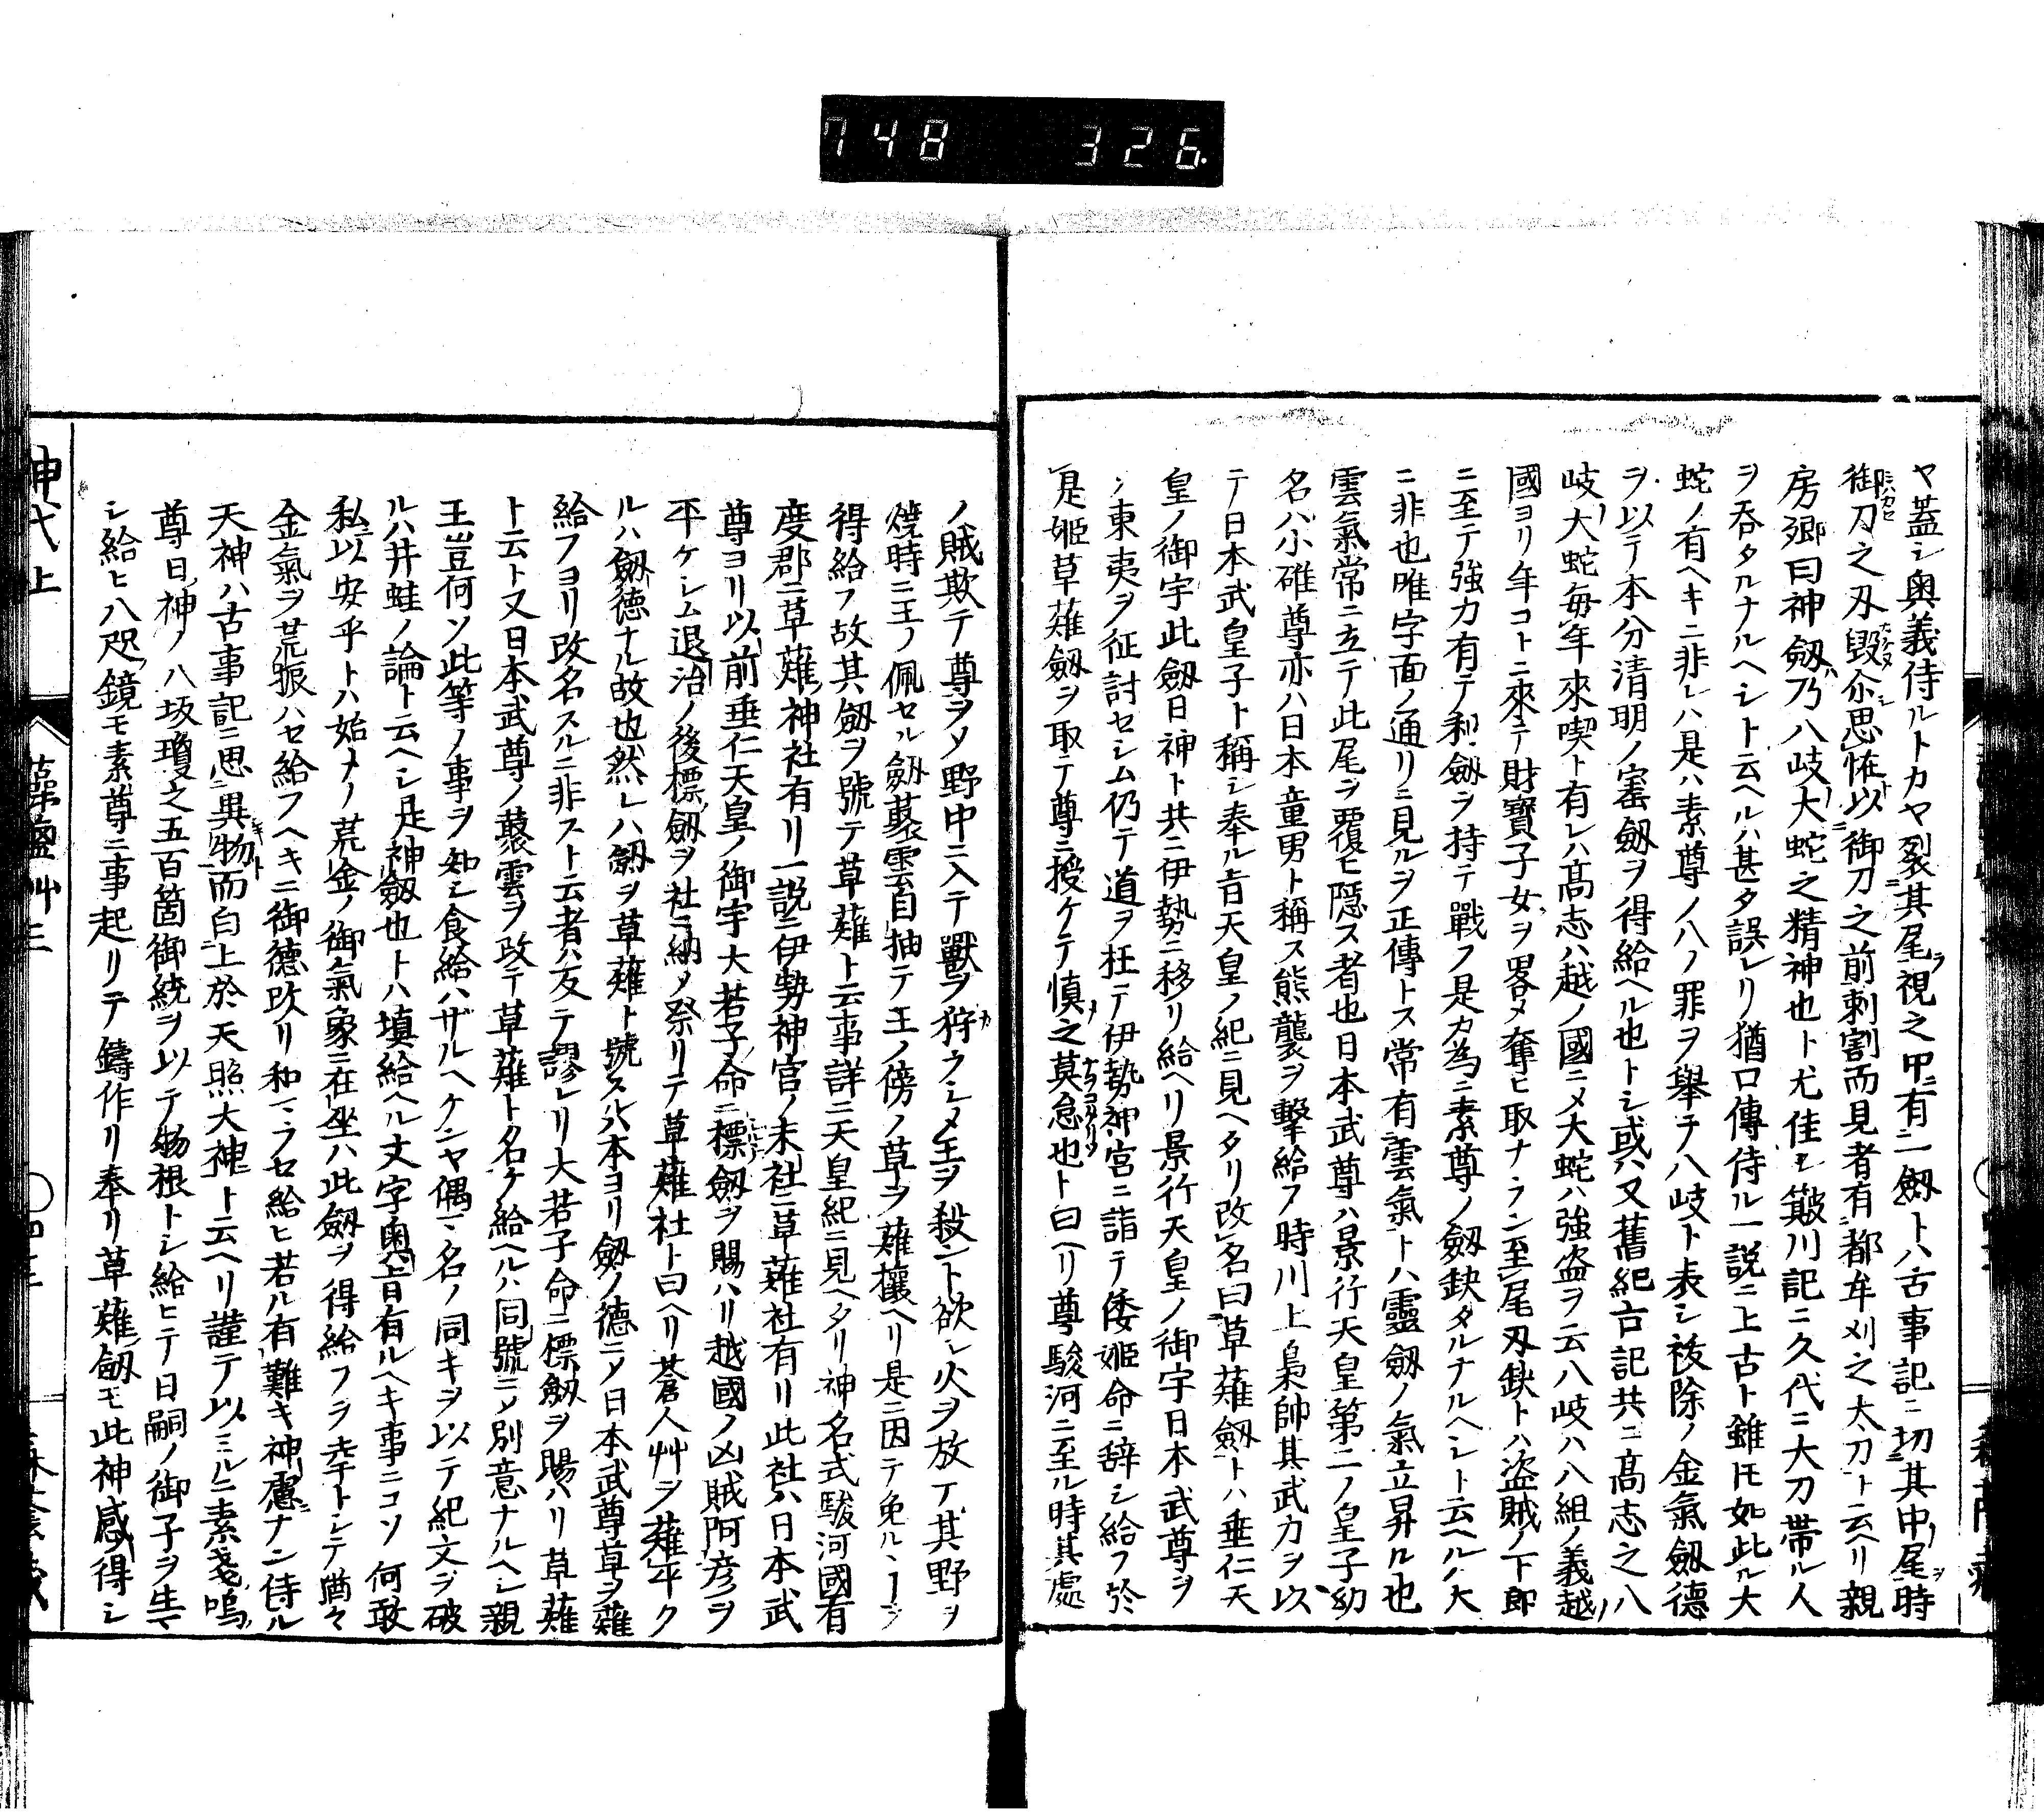 748 326.
ヤ蓋シ奥義侍ルトカヤ裂其尾視之中有一劔トハ古事記ニ切其中尾時
御刀之刃毀尒思恠以御刀之前刺割而見者有都牟刈之太刀ト云ヘリ親
房卿曰神劔乃八岐大蛇之精神也ト尤佳シ簸川記ニ久代ニ大刀帯ル人
ヲ呑タルナルヘシト云ヘルハ甚タ誤レリ猶口傳侍ル一説ニ上古ト雖トモ如此ル大
蛇ノ有ヘキニ非レハ是ハ素尊ノ八ノ罪ヲ舉テ八岐ト表シ祓除ノ金氣劔德
ヲ以テ本分清明ノ寳劔ヲ得給ヘル也トシ或ハ又舊紀古記共ニ髙志之八
岐大蛇毎年來喫ト有レハ髙志ハ越ノ國ニメ大蛇ハ強盗ヲ云八岐ハ八組ノ義越
國ヨリ年コトニ來テ財寳子女ヲ畧メ奪ヒ取ナラン至尾刃鈌トハ盗賊ノ下郎
ニ至テ強力有テ利劔ヲ持テ戰フ是カ為ニ素尊ノ劔鈌タルナルヘシト云ヘルハ大
ニ非也唯字面ノ通リニ見ルヲ正傳トス常有雲氣トハ靈劔ノ氣立昇ル也
雲氣常ニ立テ此尾ヲ覆ヒ隠ス者也日本武尊ハ景行天皇第二ノ皇子幼
名ハ小碓尊亦ハ日本童男ト稱ス熊襲ヲ擊給フ時川上梟帥其武力ヲ以
テ日本武皇子ト稱シ奉ル旨天皇ノ紀ニ見ヘタリ改名曰草薙劔トハ垂仁天
皇ノ御宇此劔日神ト共ニ伊勢ニ移リ給ヘリ景行天皇ノ御宇日本武尊ヲ
シ東夷ヲ征討セシム仍テ道ヲ枉テ伊勢神宮ニ詣テ倭姫命ニ辞シ給フ於
是姫草薙劔ヲ取テ尊ニ授ケテ慎之莫怠也ト曰ヘリ尊駿河ニ至ル時其處
ノ賊欺テ尊ヲソ野中ニ入テ獸ヲ狩ラシメ王ヲ殺ント欲シ火ヲ放テ其野ヲ
燒時ニ王ノ佩セル劔藂雲自抽テ王ノ傍ノ草ヲ薙攘ヘリ是ニ因テ免ルヽ
得給フ故其劔ヲ號テ草薙ト云事詳ニ天皇紀ニ見ヘタリ神名式駿河國有
度郡ニ草薙神社有リ一説ニ伊勢神宮ノ末社ニ草薙社有リ此社ハ日本武
尊ヨリ以前垂仁天皇ノ御宇大若子命ニ標劔ヲ賜ハリ越國ノ凶賊阿彦ヲ
平ケシム退治ノ後標劔ヲ社ニ納メ祭リテ草薙社ト曰ヘリ蒼人艸ヲ薙平ク
ルハ劔德ナル故也然レハ劔ヲ草薙ト號スルハ本ヨリ劔ノ德ニメ日本武尊草ヲ薙
給フヨリ改名スルニ非スト云者ハ反テ謬レリ大若子命ニ標劔ヲ賜ハリ草薙
ト云ト又日本武尊ノ藂雲ヲ改テ草薙ト名ケ給ヘルハ同號ニメ別意ナルヘシ親
王豈何ソ此等ノ事ヲ知シ食給ハザルヘケンヤ偶々名ノ同キヲ以テ紀文ヲ破
ルハ井蛙ノ論ト云ヘシ是神劔也トハ填給ヘル丈字奥旨有ルヘキ事ニコソ何敢
私以安乎トハ始メノ荒金ノ御氣象ニ在坐ハ此劔ヲ得給フヲ幸トシテ猶々
金氣ヲ荒振ハセ給フヘキニ御德改リ和マラセ給ヒ若ル有難キ神慮ナン侍ル
天神ハ古事記ニ思異物而白上於天照大神ト云ヘリ謹テ以ミルニ素戔嗚
尊日神ノ八坂瓊之五百箇御統ヲ以テ物根トシ給ヒテ日嗣ノ御子ヲ生マ
シ給ヒ八咫鏡モ素尊ニ事起リテ鑄作リ奉リ草薙劔モ此神感得シ
神代上
藻鹽艸三